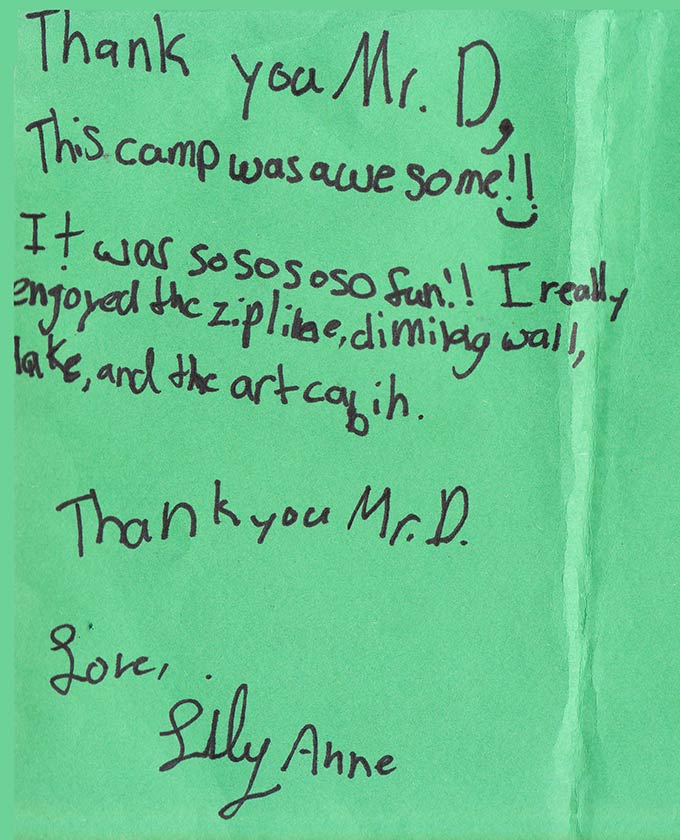 Thank you Mr. D,
This camp was awesome!!
It was so so so so fun!! I really
engoyed the zipline, climibg wall,
lake, and the art cabin.
Thank you Mr. D.
Love,
Lily Anne